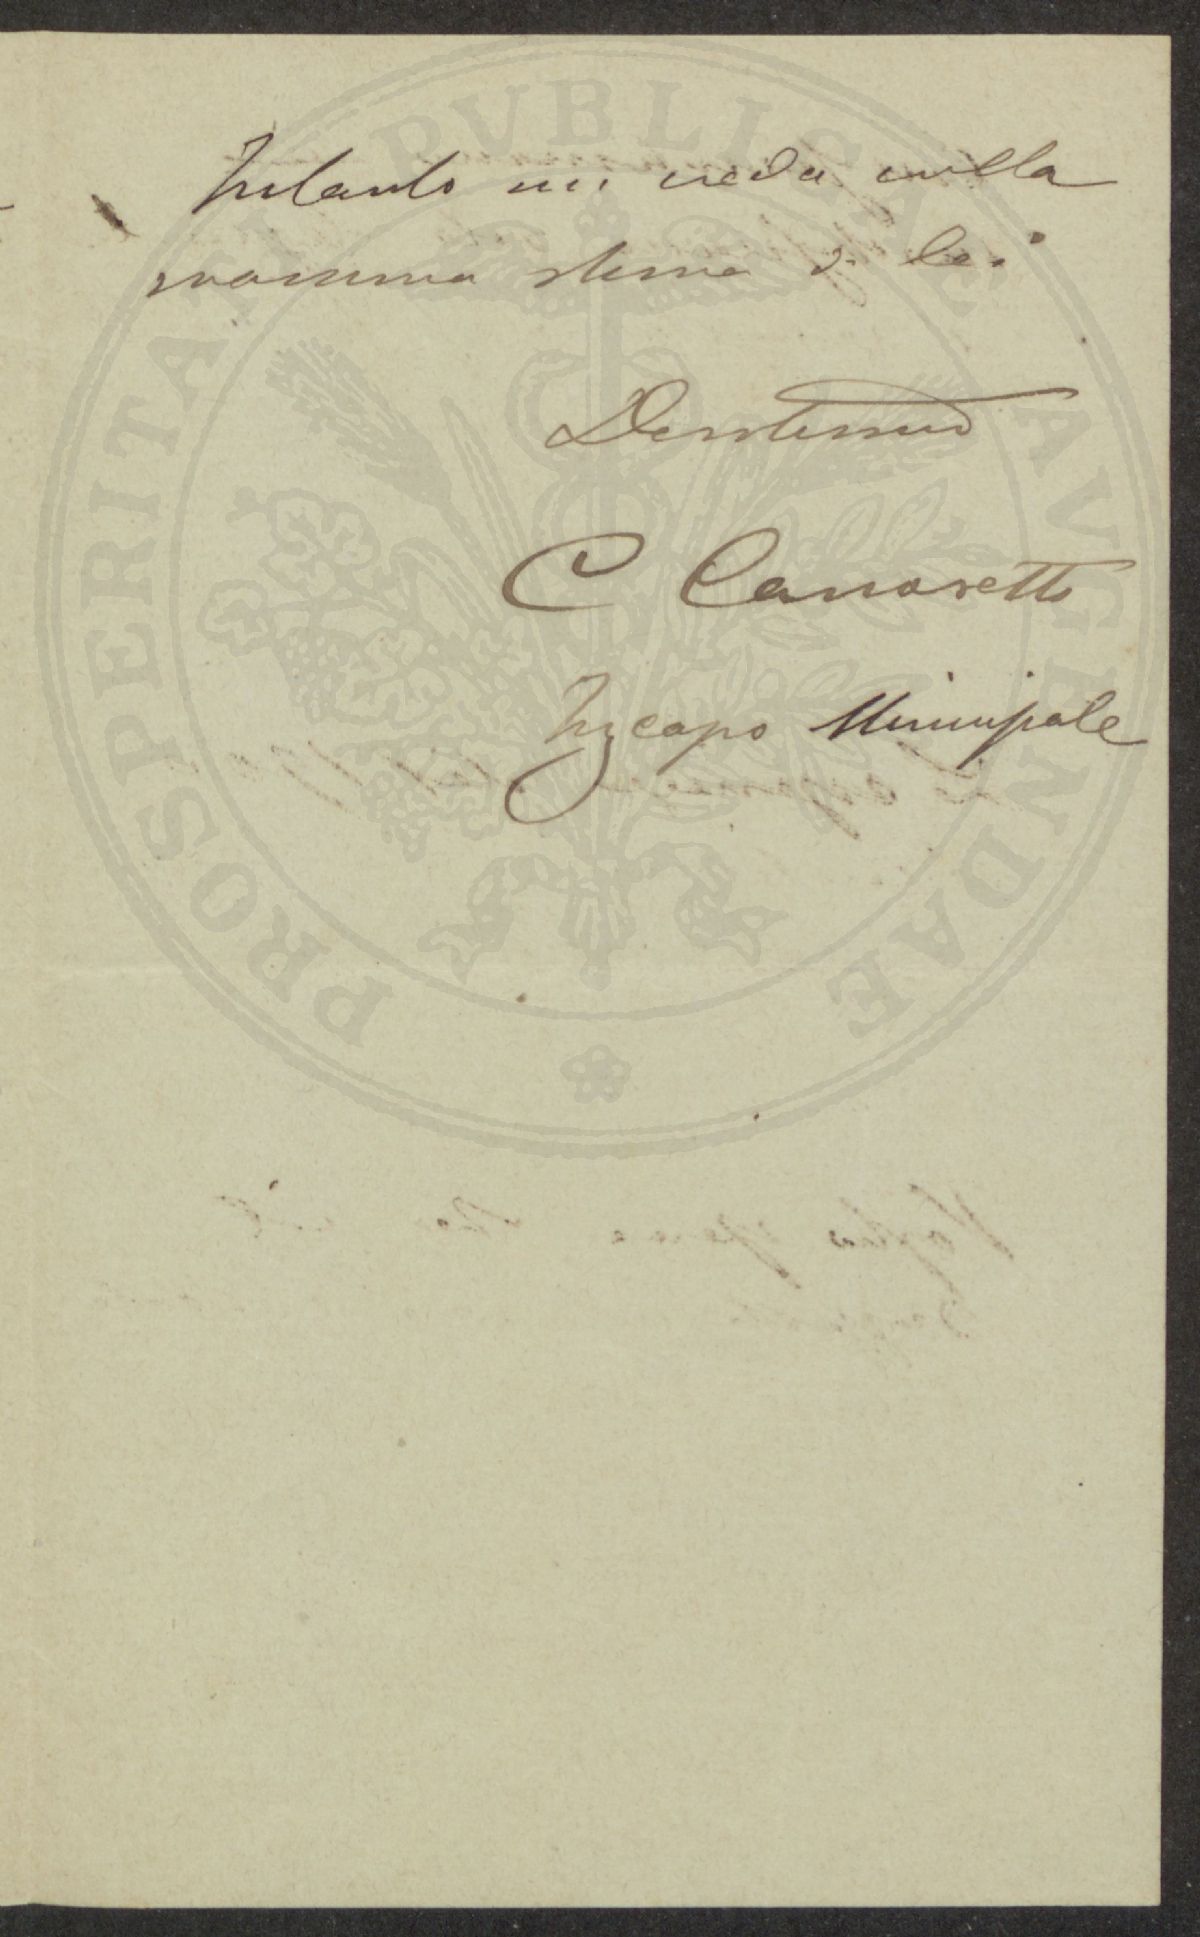 Intanto mi creda colla
massima stima di lei
Devotissimo
C Canovetti
Ing capo Municipale
PROSPERITATI PVBLICAE AVGENDAE